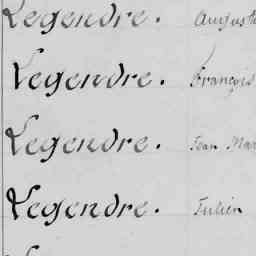 Legendre. August
Legendre. François
Legendre. Jean Mar
Legendre. Julien